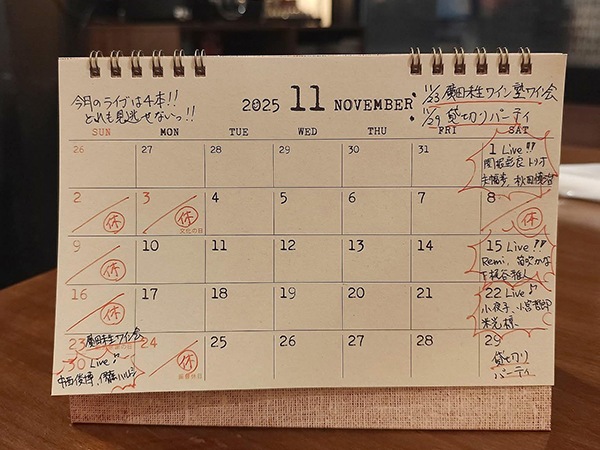 今月のライブは4本!!
どれも見逃せないっ!!
2025 11 NOVEMBER
11/23 廣田未生ワイン塾ワイン会
11/29 貸切りパーティ
SUN MON TUE WED THU FRI SAT
26 27 28 29 30 31 1 Live!!
トリオ
2 休 3 休 文化の日 4 5 6 7 8 休
9 休 10 11 12 13 14 15 Live!!
Remi、
16 休 17 18 19 20 21 22 Live♪
小夜子、小宮哲郎
23 ワイン会 24 休 振替休日 25 26 27 28 29
30 Live♪
貸切り
パーティ